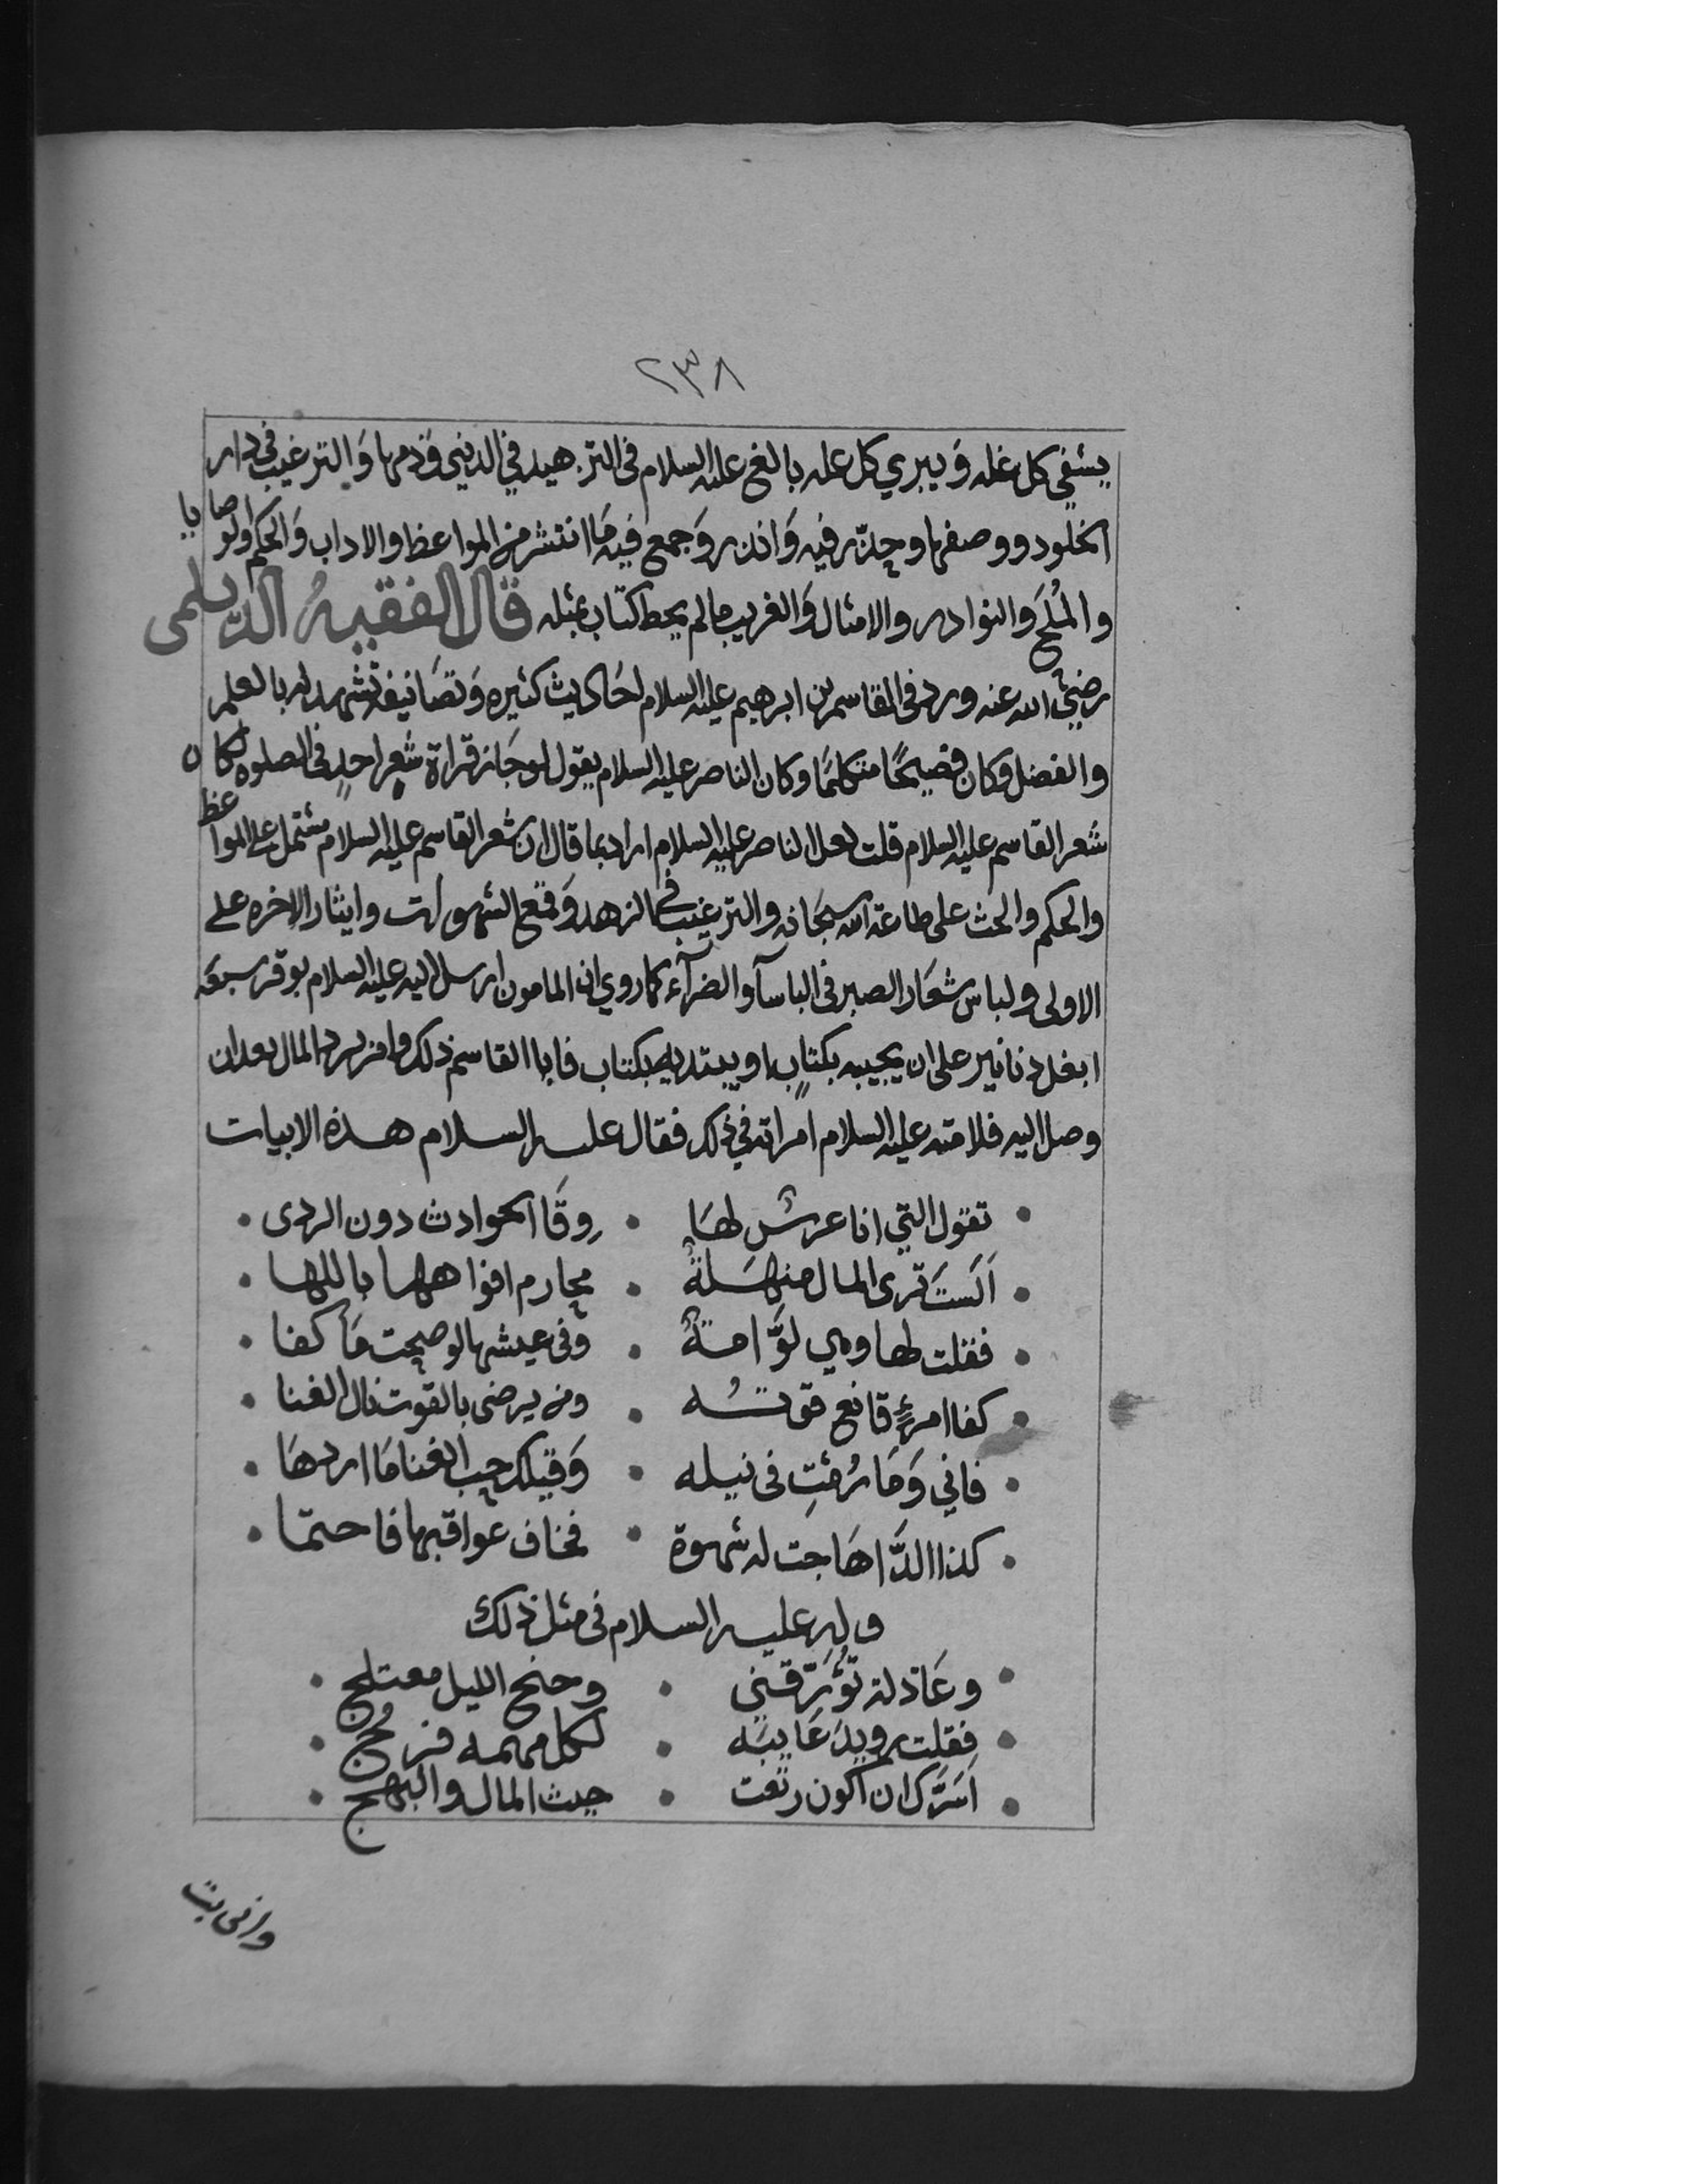 ٢٣٨
يشفي كل غله وَيبري كل عله بالغ عليه السلام فى التزهيد في الدنيى وَذمها وَالترغيب في دار
الخلود ووصفها وحذّر فيه وَانذر وَجمع فيه مَا انتشر من المواعظ والاداب وَالحكم والوصايا
والمُلَح وَالنوادر والامثال وَالغريب مالم يحط كتاب بمثله قال الفقيهُ الدَّيلمى
رضيَ الله عنه ورد فى القاسم بن ابرهيم عليه السلام احَاديث كثيره وَتصَانيفه تشهد له بالعلم
والفضل وكان فصيحًا متكلمًا وكان الناصر عليه السلام يقول لو جَاز قراة شعر احدٍ فى الصلوه لكان
شعر القاسم عليه السلام قلت لعل الناصر عليه السلام اراد بما قال ان شعر القاسم عليه السلام مشتمل على المواعظ
والحكم والحث على طاعة الله سبحَانه والترغيب في الزهد وَقمع الشهوات وايثار الاخره على
الاولى ولباس شعَار الصبر فى الباسآ والضرآء كما روي ان المامون ارسل اليه عليه السلام بوقر سبعَة
ابغل دنانير على ان يجيبه بكتابٍ او يبتديه بكتاب فابا القاسم ذلك وامر برد المال بعد ان
وصل اليه فلامته عليه السلام امراته في ذلك فقال عليه السلام هذه الابيات
تقول التي انا عرسٌ لهَا • وقَا الحوادث دون الردى •
اَلَستَ ترى المال منهَلةً • مخارم افواهها باللها •
فقلت لها وهي لوَّامةٌ • وفى عيشها لو صحت مَا كفا •
كفا امرءٍ قانع قوتُه • ومن يرضى بالقوت نال الغنا •
فاني وَمَا رُمتِ فى نيله • وَقبلك حب الغنا مَا ازدهَا •
كذا الدَّا هَاجت له شهوة • فخاف عواقبها فاحتما •
وله عليه السلام فى مثل ذلك
وعَاذلة تُؤَرّقني • وجنح الليل معتلج •
فقلت رويدَ عَايبَه • لكل مهمه فرج •
اَسَرَّك ان اكون رتعت • حيث المال والبهج •